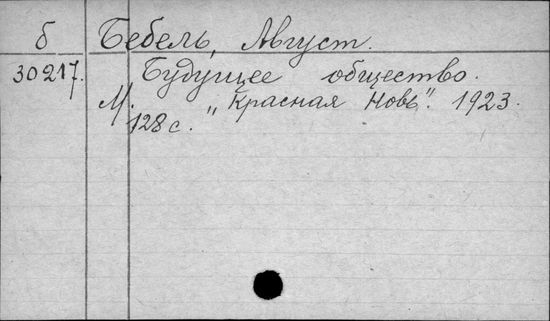 б Бебель, Август.
30217. Будущее общество.
М. "Красная Новь". 1923.
128 с.